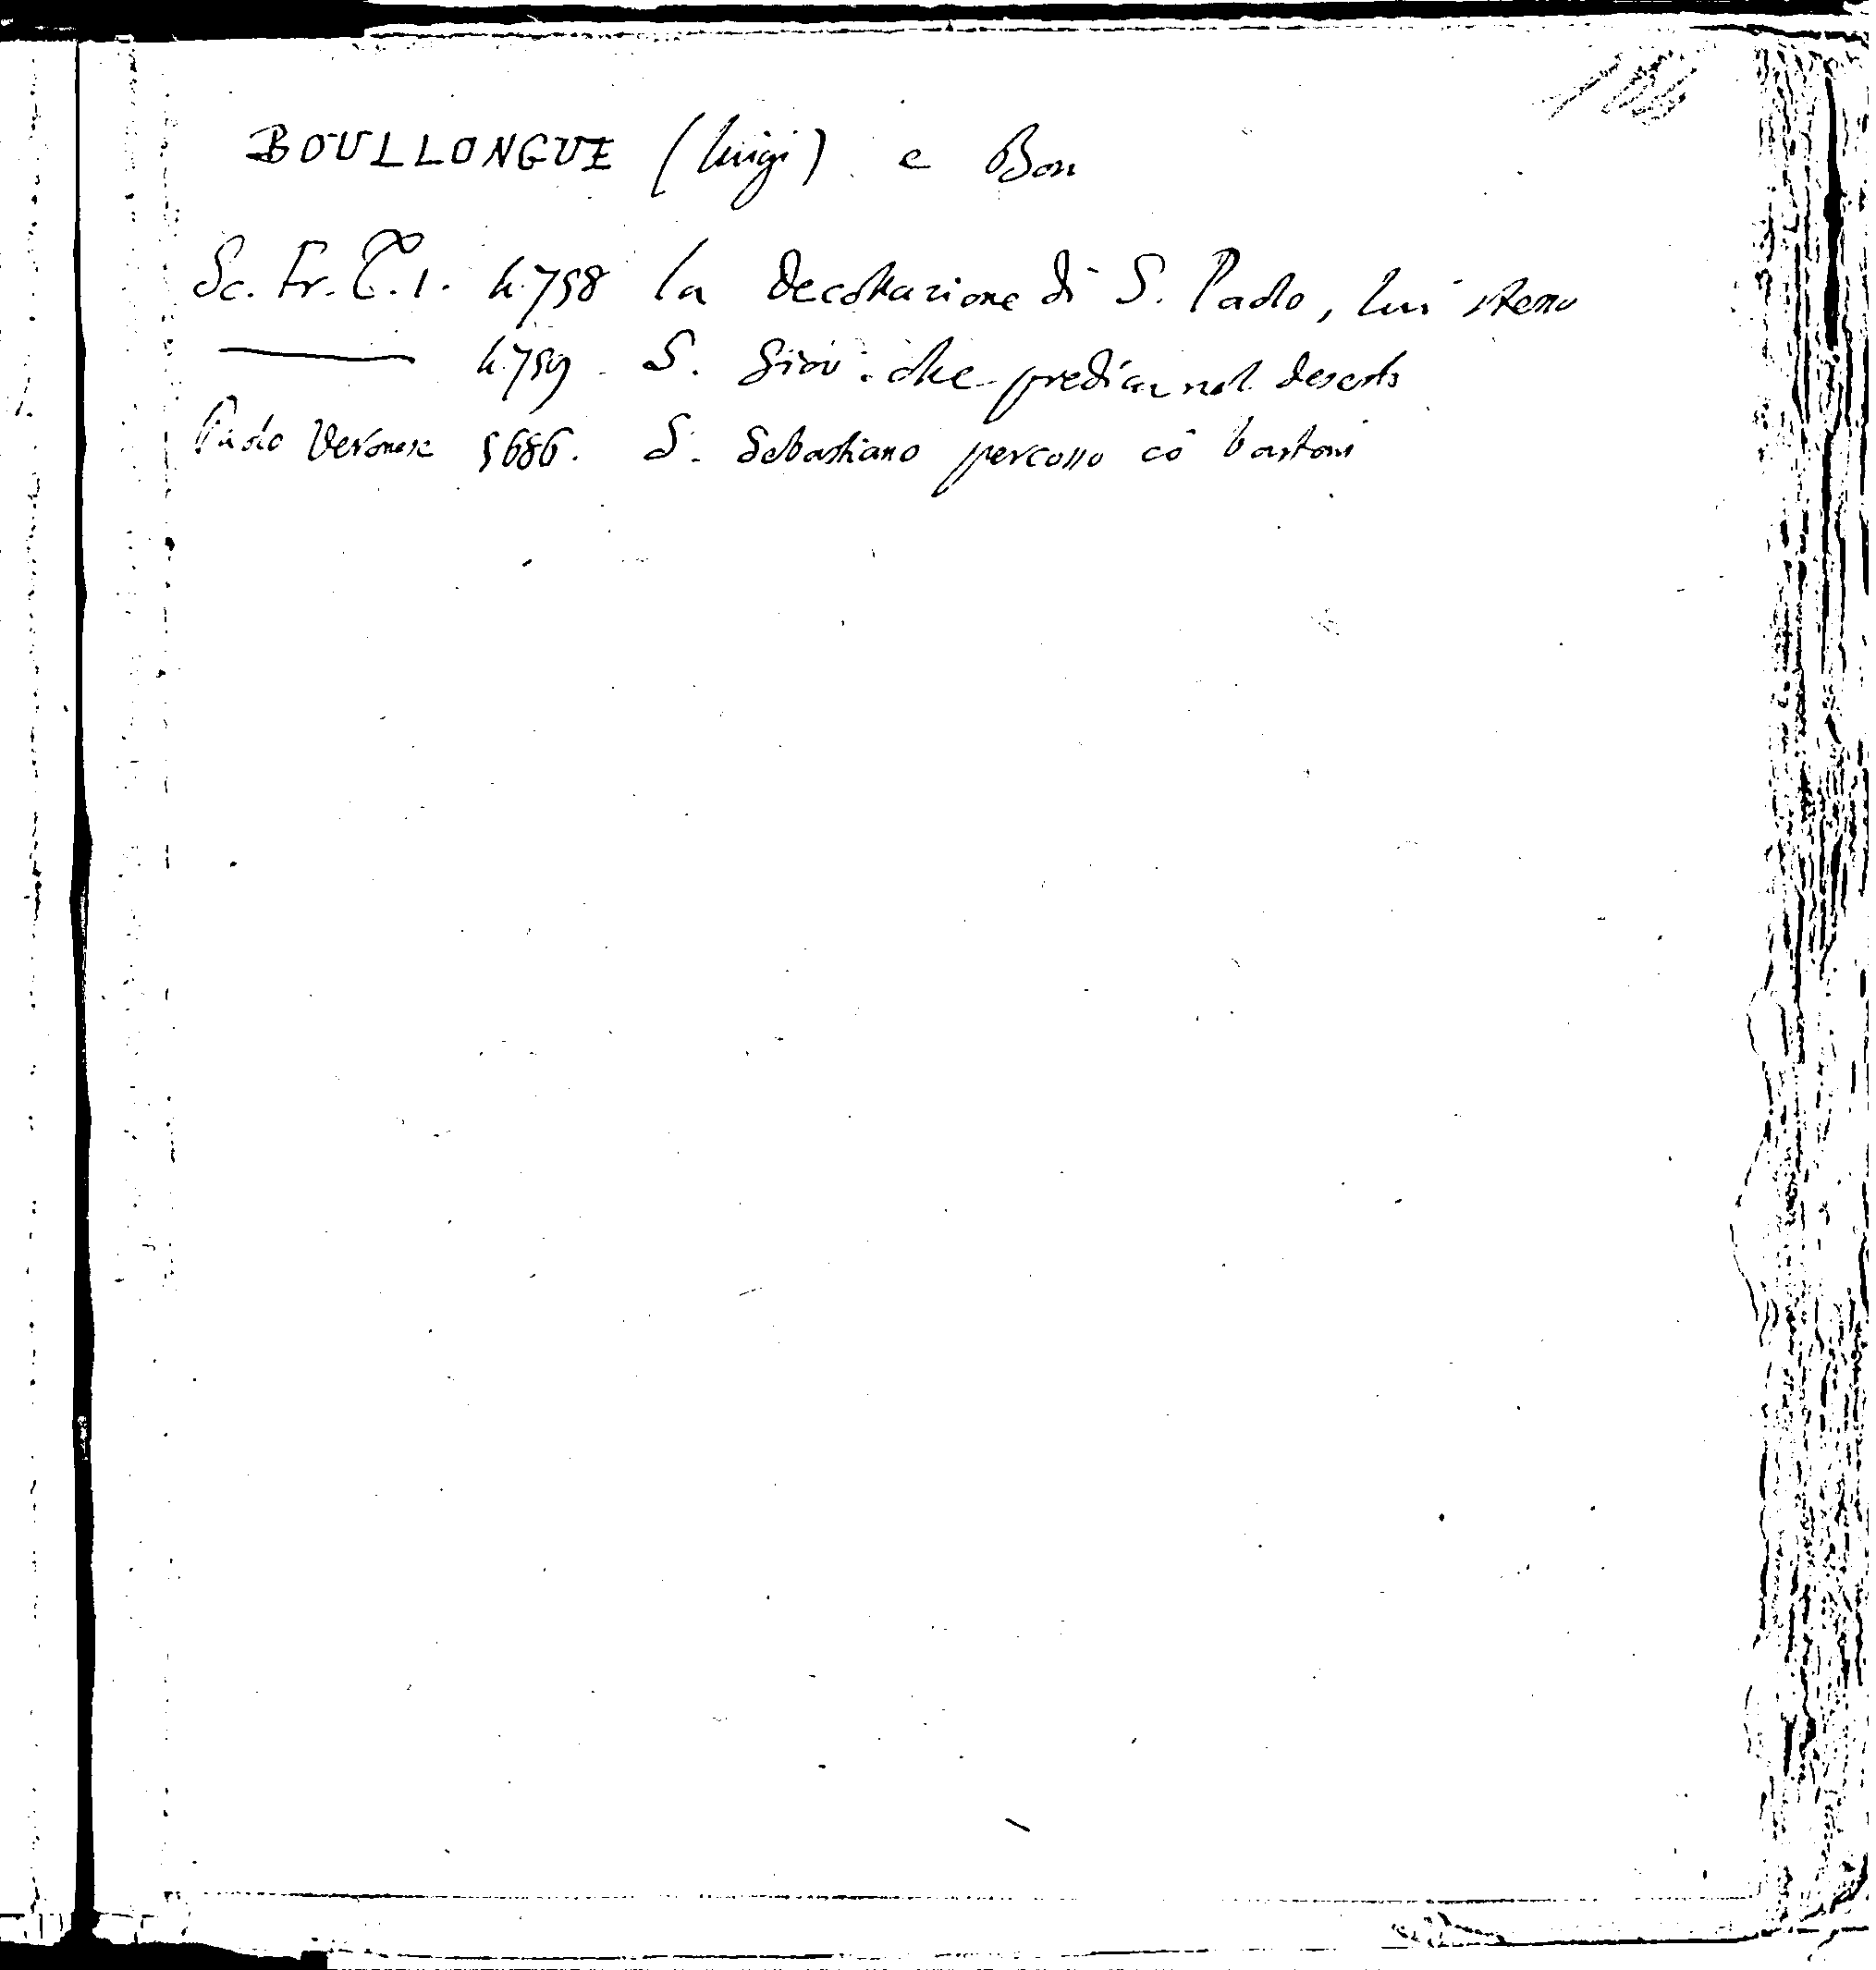 BOULLONGUE (luigi) e Bon
Sc. Fr. T. 1. h.758 la Decollazione di S. Paolo, lui stesso
h.759. S. Giov: che predica nel deserto
Paolo Veronese 5686. S. Sebastiano percosso cõ bastoni